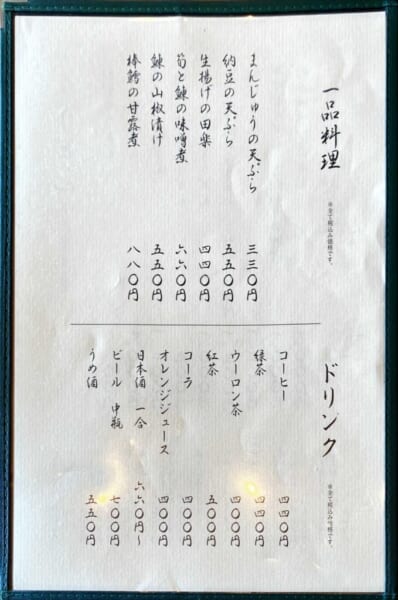 一品料理
※全て税込み価格です。
まんじゅうの天ぷら 三三〇円
納豆の天ぷら 五五〇円
生揚げの田楽 四四〇円
筍と鰊の味噌煮 六六〇円
鰊の山椒漬け 五五〇円
棒鱈の甘露煮 八八〇円
ドリンク
※全て税込み価格です。
コーヒー 四四〇円
緑茶 四四〇円
ウーロン茶 四〇〇円
紅茶 五〇〇円
コーラ 四〇〇円
オレンジジュース 四〇〇円
日本酒 一合 六六〇円〜
ビール 中瓶 七〇〇円
うめ酒 五五〇円